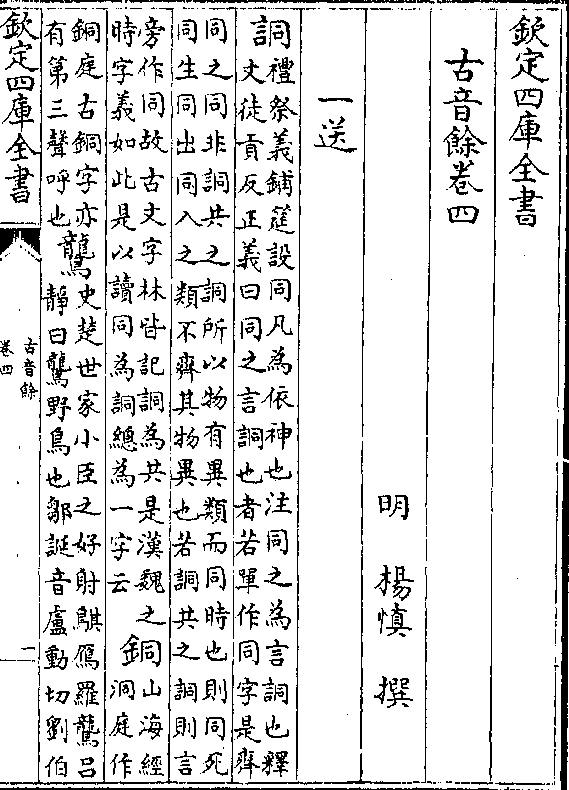 欽定四庫全書
古音餘卷四
明 楊慎 撰
一送
詷
禮祭義鋪筵設同凡為依神也注同之為言詷也釋
文徒貢反正義曰同之言詷也者若單作同字是齊
同之同非詷共之詷所以物有異類而同時也則同死
同生同出同入之類不齊其物異也若詷共之詷則言
旁作同故古文字林皆記詷為共是漢魏之
時字義如此是以讀同為詷總為一字云
銅
山海經
洞庭作
銅庭古銅字亦
有第三聲呼也
鸗
史楚世家小臣之好射鶀鴈羅鸗呂
靜曰鸗野鳥也鄒誕音盧動切劉伯
欽定四庫全書
古音餘
卷四
一